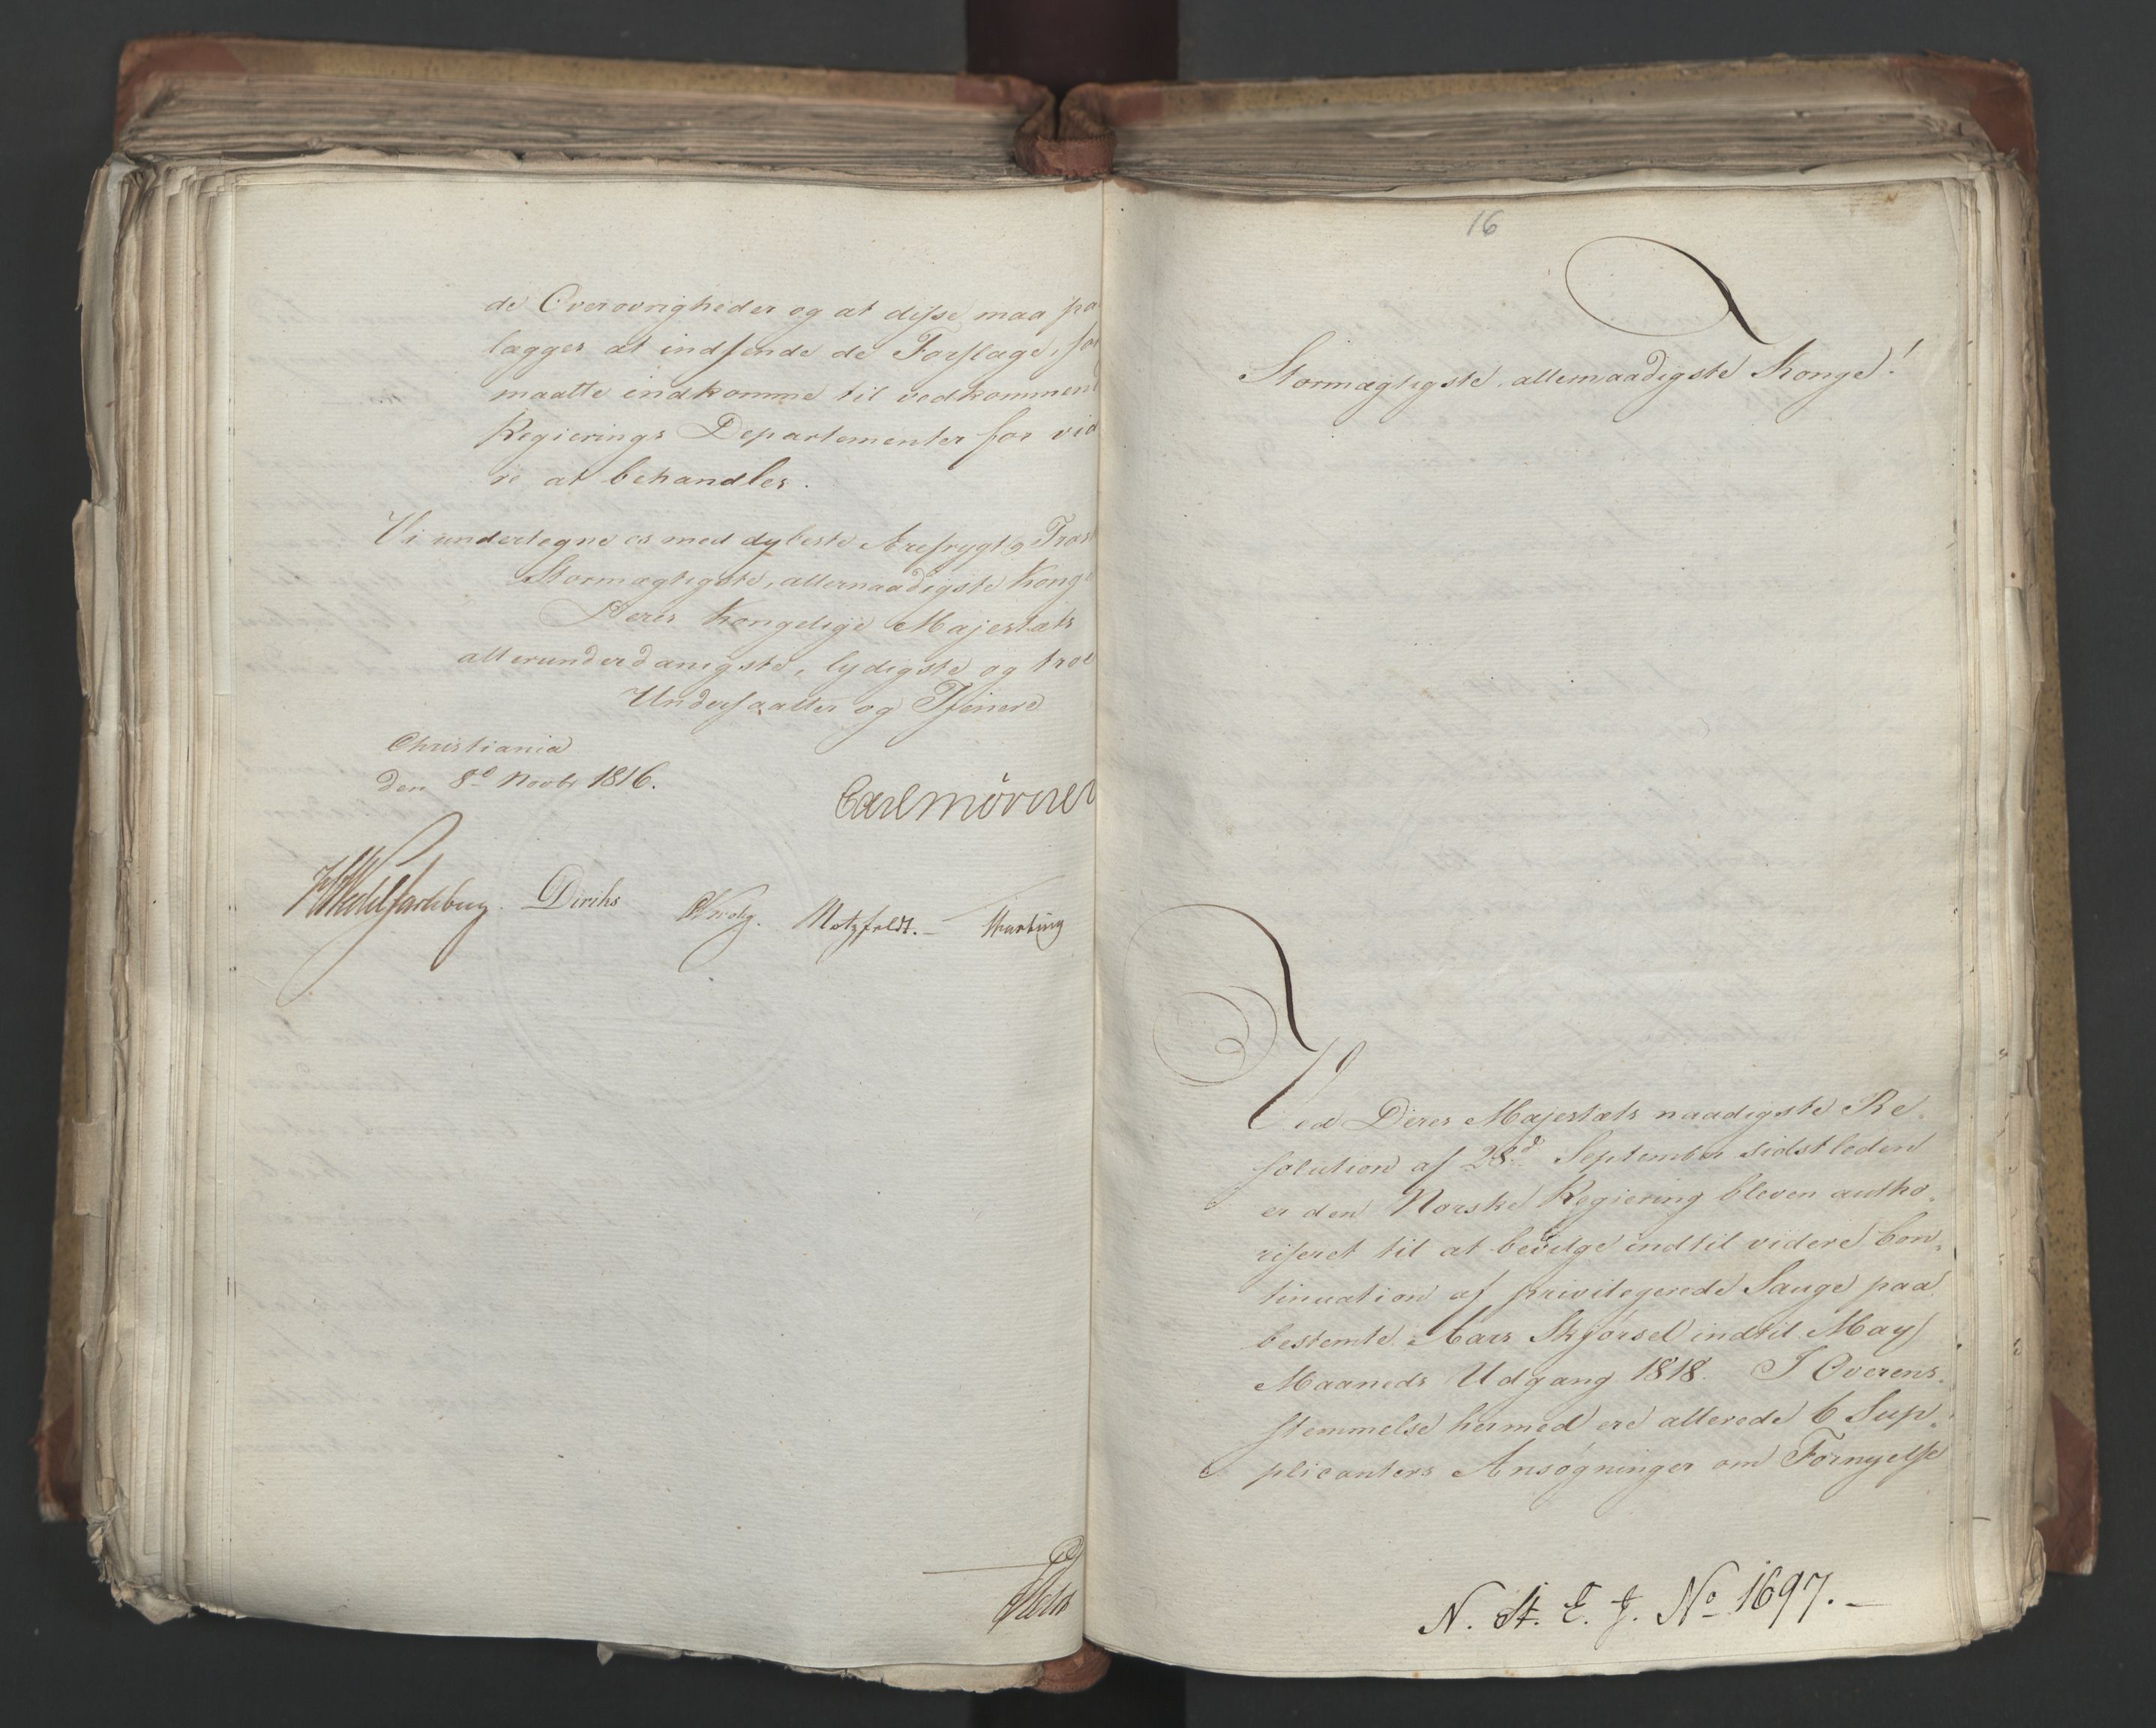 de Overøvrigheder og at disse maa pa
lægges at indsende de Forslage, so
maatte indkomme til vedkommend
Regierings Departementer for vid
re at behandles.
Vi undertegne os med dybeste Ærefrygt og Tros
Stormægtigste, allernaadigste Konge
Deres Kongelige Majestæts
allerunderdanigste, lydigste og troe
Undersaatter og Tjenere
Christiania
den 8d Novbr 1816.
Carl Mörner
HWedel Jarlsberg. Diriks Krog. Motzfeldt. – 
16
Stormægtigste, allernaadigste Konge!
Ved Deres Majestæts naadigste Re-
solution af 28d September sidstleden
er den Norske Regiering bleven autho-
riseret til at bevilge indtil videre Con-
tinuation af privilegerede Sauge paa
bestemte Aars Skjørsel indtil May
Maaneds Udgang 1818. I Overens-
stemmelse hermed ere allerede 6 Sup-
plicanters Ansøgninger om Fornyelse
N. St. E. J. No 1697. –